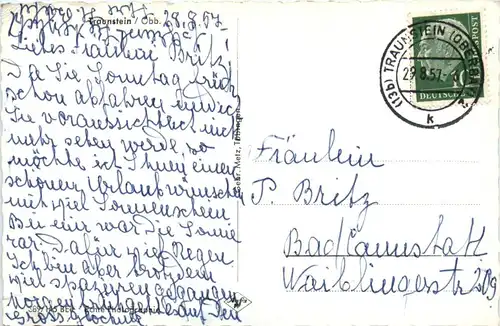 Traunstein / Obb. 28.8.57.
Liebes Fräulein Britz!
Da Sie Sonntag früh
schon abfahren und ich
Sie voraussichtlich nicht
mehr sehen werde, so
möchte ich Ihnen einen
schönen Urlaub wünschen
mit viel Sonnenschein.
Bei mir war die Sonne
rar. Dafür viel Regen.
Ich bin aber trotzdem
viel spazieren gegangen
morgen
Grossglockner
Gebr. Metz, Tübingen
Echte Photographie
(13b) TRAUNSTEIN (OBERBAY)
29.8.57.
k
DEUTSCHE POST
10
Fräulein
P. Britz
Bad Cannstatt
Waiblingerstr.